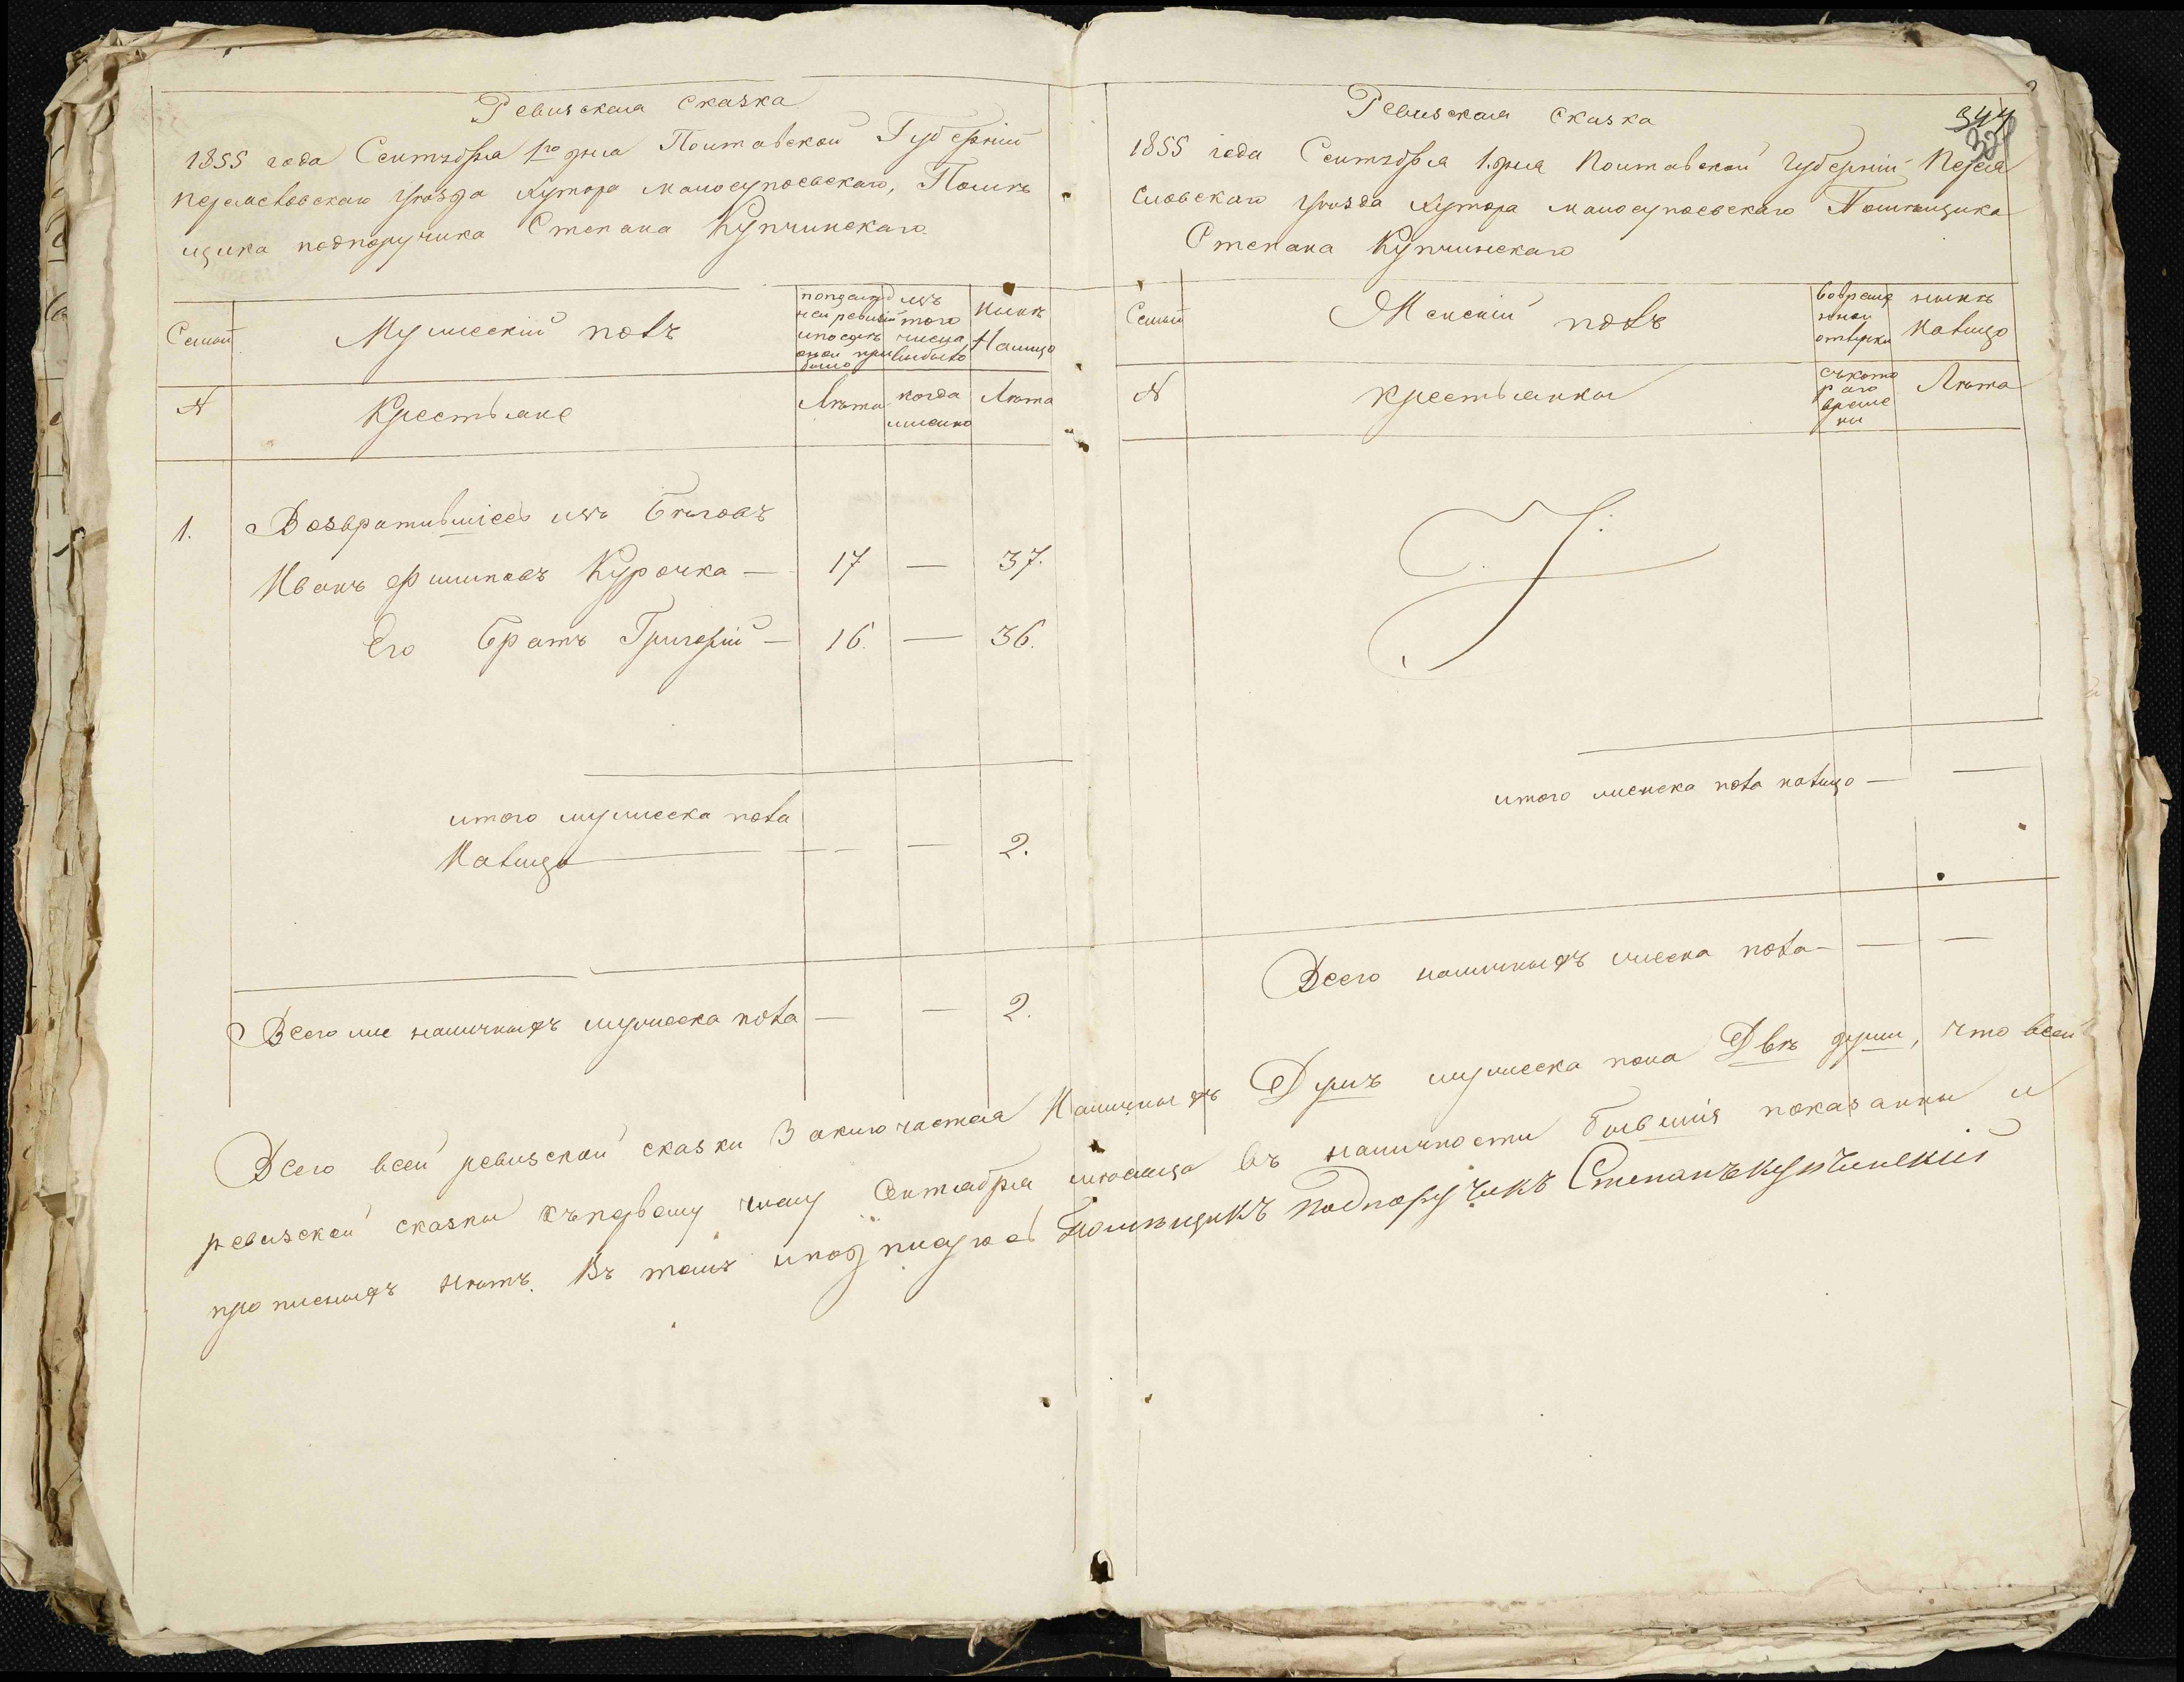 Ревизская сказка
1855 года Сентября 1го дня Полтавской Губерніи
Переяславскаго уѣзда хутора малосупоевскаго, Помѣ
щика подпоручика Степана Купчинскаго
Семьи
Мужескій полъ
изъ
того
числа
выбыло
Нынѣ
Налицо
N
Крестьяне
Лѣта
когда
именно
Лѣта
1.
Возвратившіесь изъ бѣговъ
Иванъ Филиповъ Курочка — 17 — 37.
Его братъ Григорій — 16. — 36.
итого мужеска пола
Налицо — — 2.
Всего же наличныхъ мужеска пола — — 2.
Ревизская сказка
344
1855 года Сентября 1. дня Полтавской губерніи Перея
славскаго уѣзда хутора малосупоевскаго Помѣщика
Степана Купчинскаго
Семьи
Женскій полъ
вовреме
нной
отлучки
нынѣ
Налицо
N
крестьянки
съкото
раго
време
ни
Лѣта
итого женска пола налицо — —
Всего наличныхъ женска пола — — —
Всего всей ревизской сказки Заключается Наличныхъ Душъ мужеска пола Двѣ души, что всей
ревизской сказки къпервому числу Сентября мѣсяца въ наличности бывшія показанны и
прописныхъ нѣтъ. Въ томъ иподписуюсь Помѣщикъ Подпоручикъ Степанъ Купчинскій